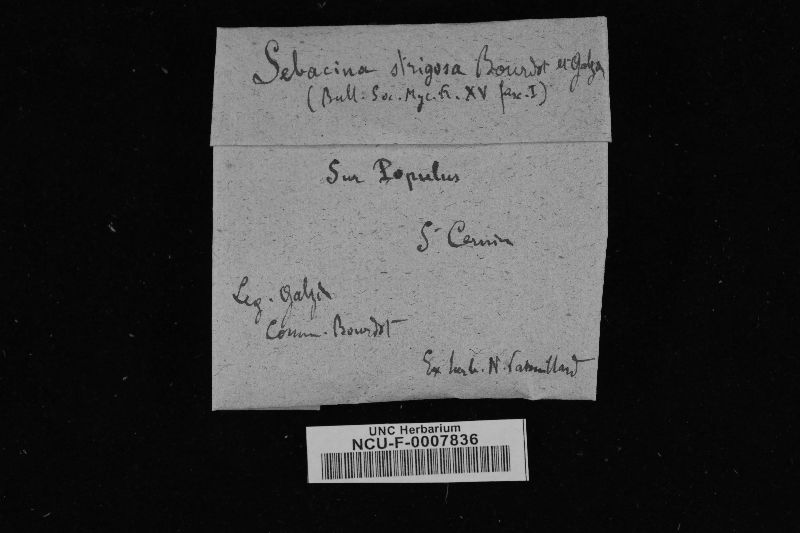 Sebacina strigosa Bourdot et Galzin
(Bull. Soc. Myc. Fr. XV fasc. I)
Sur Populus
St Cernin
Leg. Galzin
Comm. Bourdot
Ex herb. N. Patouillard
UNC Herbarium
NCU-F-0007836